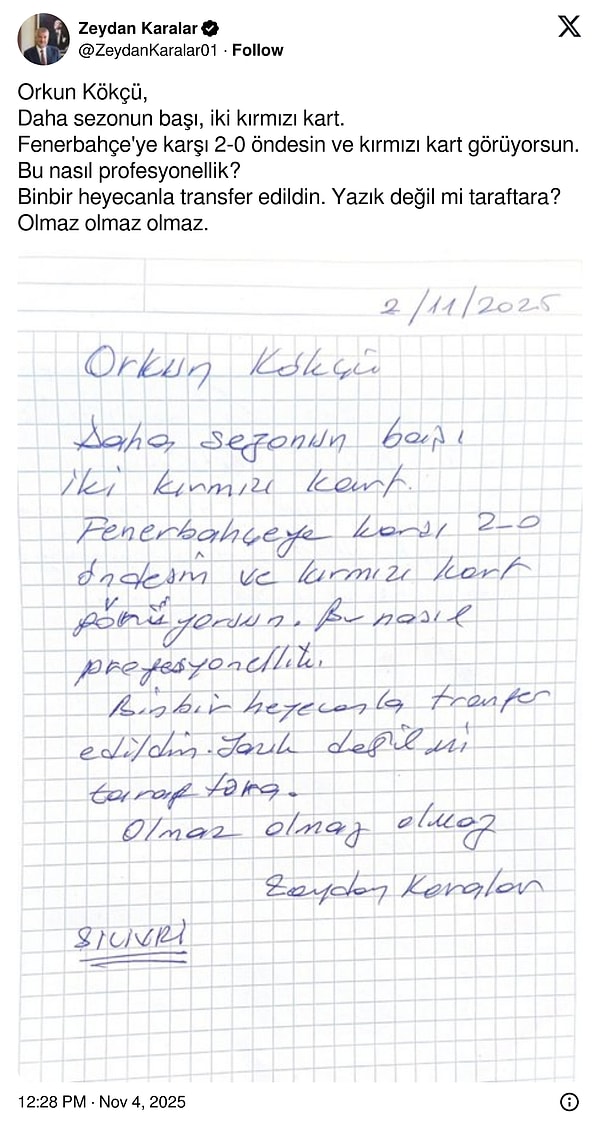 Zeydan Karalar
@ZeydanKaralar01 · Follow
X
Orkun Kökçü,
Daha sezonun başı, iki kırmızı kart.
Fenerbahçe'ye karşı 2-0 öndesin ve kırmızı kart görüyorsun.
Bu nasıl profesyonellik?
Binbir heyecanla transfer edildin. Yazık değil mi taraftara?
Olmaz olmaz olmaz.
2/11/2025
Orkun Kökçü
Daha sezonun başı
iki kırmızı kart.
Fenerbahçeye karşı 2-0
öndesin ve kırmızı kart
görüyorsun. Bu nasıl
prefesyonellik.
Binbir heyecanla tranfer
edildin. Yazık değil mi
taraftara.
Olmaz olmaz olmaz
Zeydan Karalar
SİLİVRİ
12:28 PM · Nov 4, 2025